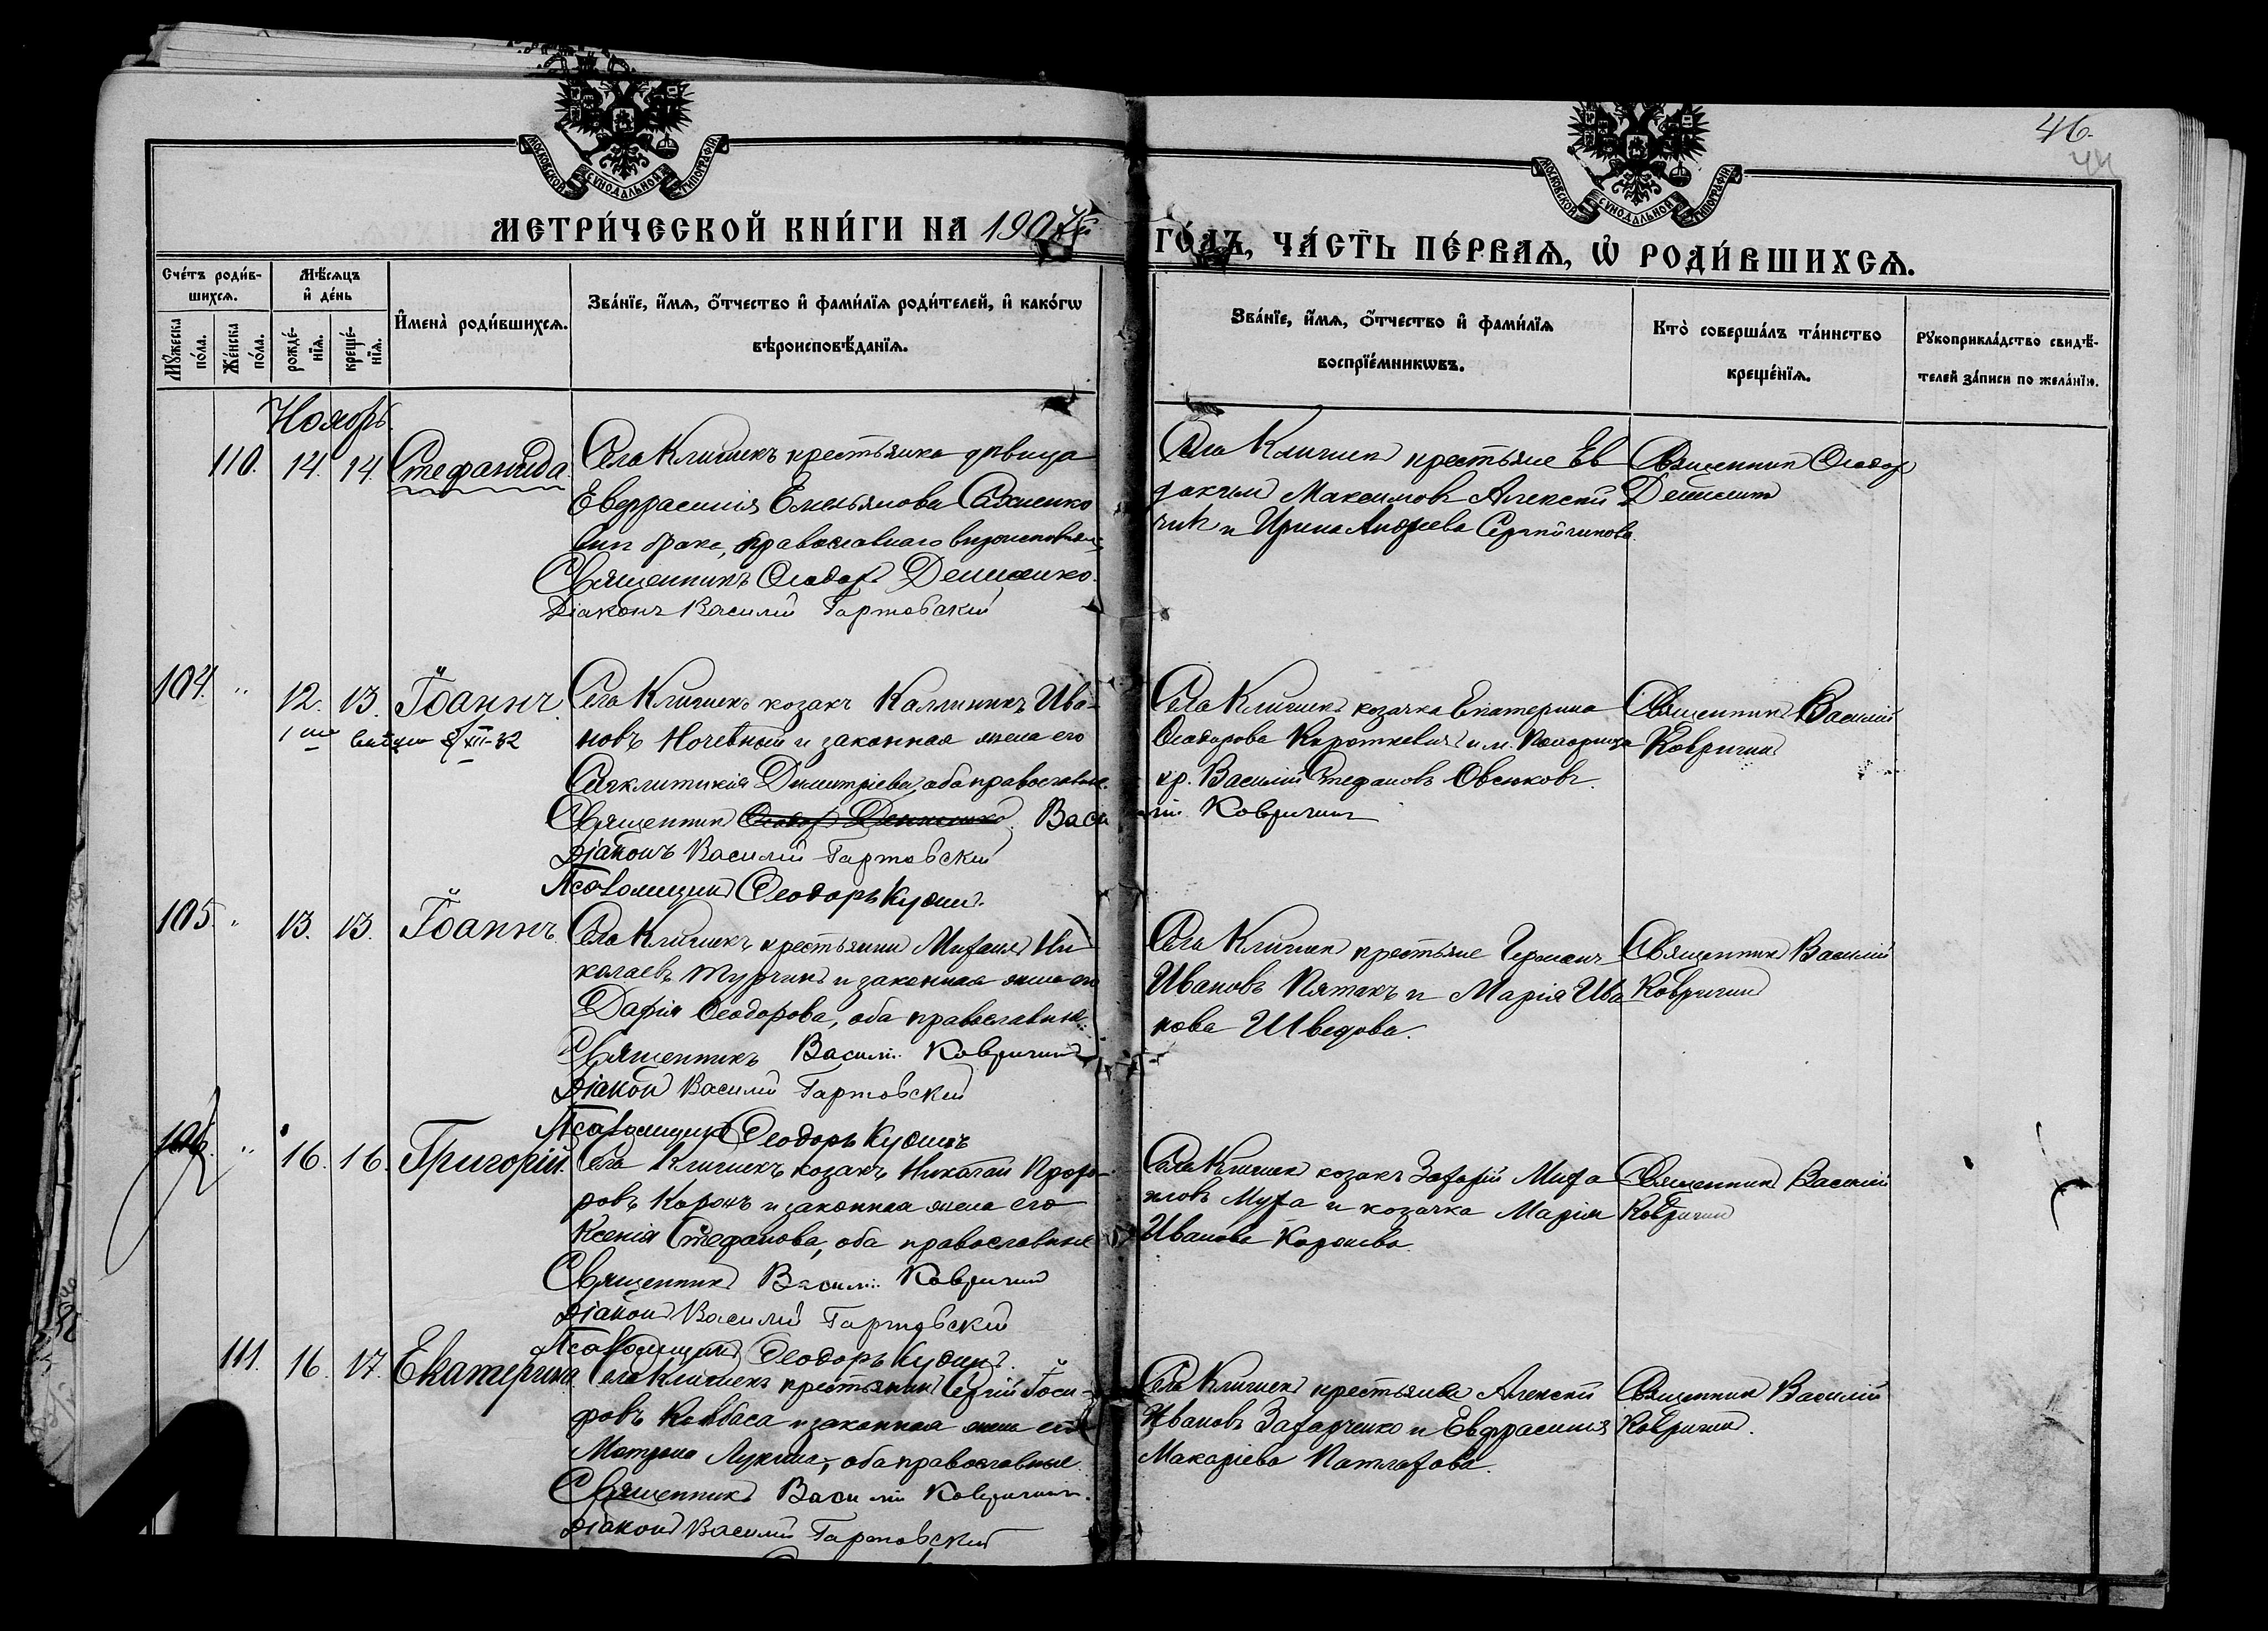 46.
44
МОСКОВСКОЙ СѴНОДАЛЬНОЙ ТИПОГРАФІИ
МОСКОВСКОЙ СѴНОДАЛЬНОЙ ТИПОГРАФІИ
МЕТРИ́ЧЕСКОЙ КНИ́ГИ НА 1907й ГО́ДЪ, ЧА́СТЬ ПЕ́РВАѦ, Ѡ҆ РОДИ́ВШИХСѦ.
Сче́тъ роди́в-
шихсѧ.
Мѣ́сѧцъ
и҆ де́нь
Мꙋжеска
по́ла.
Же́нска
по́ла.
рожде́-
нїѧ.
креще́-
нїѧ.
И҆мена̀ роди́вшихсѧ.
Зва́нїе, и҆́мѧ, ѻ҆́тчество и҆ фами́лїѧ роди́телей, и҆ како́гѡ
вѣроисповѣ́данїѧ.
Зва́нїе, и҆́мѧ, ѻ҆́тчество и҆ фами́лїѧ
воспрїе́мникѡвъ.
Кто̀ соверша́лъ та́инство
креще́нїѧ.
Рꙋкоприкла́дство свидѣ́-
телей за́писи по жела́нїю.
Ноябрь.
110. 14. 14. Стефанида.
Села Клишекъ крестьянка дѣвица
Евфрасинія Емельянова
внѣ брака, православнаго
Священникъ Ѳеодоръ Денисенко.
Діаконъ Василій Гартовскій
Села Клишекъ крестьяне Ев
доким Максимовъ Алексѣй
чикъ и Ирина Андреева
Священникъ Ѳеодоръ
104. " 12. 13. Іоаннъ.
XII-32
Села Клишекъ козакъ Каллиникъ Ива-
новъ Ночевный и законная жена его
Синклитикія Димитріева, оба православные.
Священникъ Ѳеодоръ Денисенко Васи лій Ковригинъ
Діаконъ Василій Гартовскій
Псаломщикъ Ѳеодоръ Кусинъ.
Села Клишекъ козачка Екатерина
Ѳеодорова Короткевичъ и м.
кр. Василій Стефановъ Овсюковъ.
Священникъ Василій
Ковригинъ
105. " 13. 13. Іоаннъ.
Села Клишекъ крестьянин Михаилъ Ни
колаевъ Турчинъ и законная жена его
Дарія Ѳеодорова, оба православные.
Священникъ Василій Ковригинъ
Діаконъ Василій Гартовскій
Псаломщикъ Ѳеодоръ Кусинъ
Села Клишекъ крестьяне Германъ
Ивановъ Пятакъ и Марія Ива
нова Шведова.
Священникъ Василій
Ковригинъ
106. " 16. 16. Григорій.
Села Клишекъ козакъ Николай
ровъ Коропъ и законная жена его
Ксенія Стефанова, оба православные
Священникъ Василій Ковригинъ
Діаконъ Василій Гартовскій
Псаломщикъ Ѳеодоръ Кусинъ.
Села Клишекъ козакъ Захарій Миха
иловъ Муха и козачка Марія
Иванова
Священникъ Василій
Ковригинъ
111. 16. 17. Екатерина.
Села Клишекъ крестьянинъ Сергій Іоси-
фовъ Колбаса и законная жена его
Матрона Лукина, оба православные.
Священникъ Василій Ковригинъ.
Діаконъ Василій Гартовскій
Села Клишекъ крестьяне Алексѣй
Ивановъ Захарченко и Евфрасинія
Макаріева Патлахова.
Священникъ Василій
Ковригинъ.